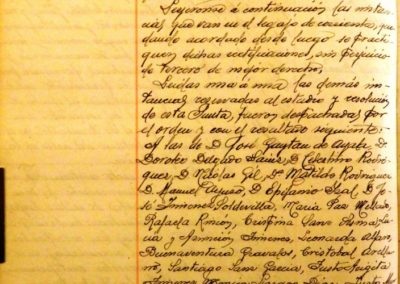 Leyeronse á continuación las instan-
cias que van en el legajo de corrientes, que
dando acordado desde luego se practi-
quen dichas rectificaciones, sin perjuicio
de tercero de mejor derecho.
Leidas una á una las demás ins-
tancias reservadas al estudio y resolución
de esta Junta, fueron despachadas por
el orden y con el resultado siguiente:
A las de D. José Gaytan de Ayala, D.
Doroteo Delgado Sainz, D. Celestino Rodri-
guez, D. Nicolas Gil, Dª Matilde Rodriguez
D. Manuel D. Epifanio Leal, D. Jo
sé Jimenez Valdevilla, Maria Paz
Rafaela Rincón, Cristina Sanz
cia y Asunción Jimenez, Leonarda Alfaro,
Buenaventura Gravalos, Cristobal
no, Santiago Sanz Garcia, Justo
Jimenez